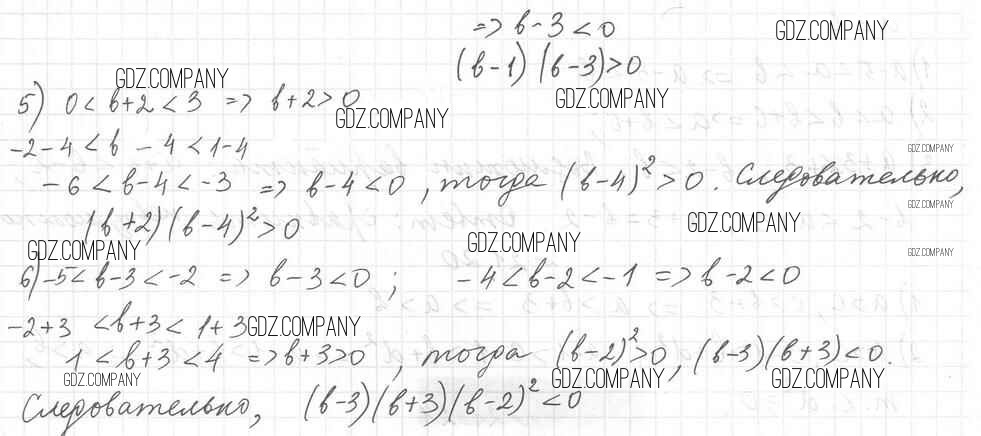 => b - 3 < 0
(b-1)(b-3)>0
5) 0 < b+2 < 3 => b+2>0
-2-4 < b - 4 < 1-4
-6 < b-4 < -3 => b-4<0, тогда (b-4)²>0. Следовательно,
(b+2)(b-4)²>0
6) -5< b-3 < -2 => b-3<0; -4< b-2 <-1 => b-2<0
-2+3 < b+3 < 1+3
1 < b+3 < 4 => b+3>0, тогда (b-2)²>0, (b-3)(b+3)<0.
Следовательно, (b-3)(b+3)(b-2)²<0
GDZ.COMPANY
GDZ.COMPANY
GDZ.COMPANY
GDZ.COMPANY
GDZ.COMPANY
GDZ.COMPANY
GDZ.COMPANY
GDZ.COMPANY
GDZ.COMPANY
GDZ.COMPANY
GDZ.COMPANY
GDZ.COMPANY
GDZ.COMPANY
GDZ.COMPANY